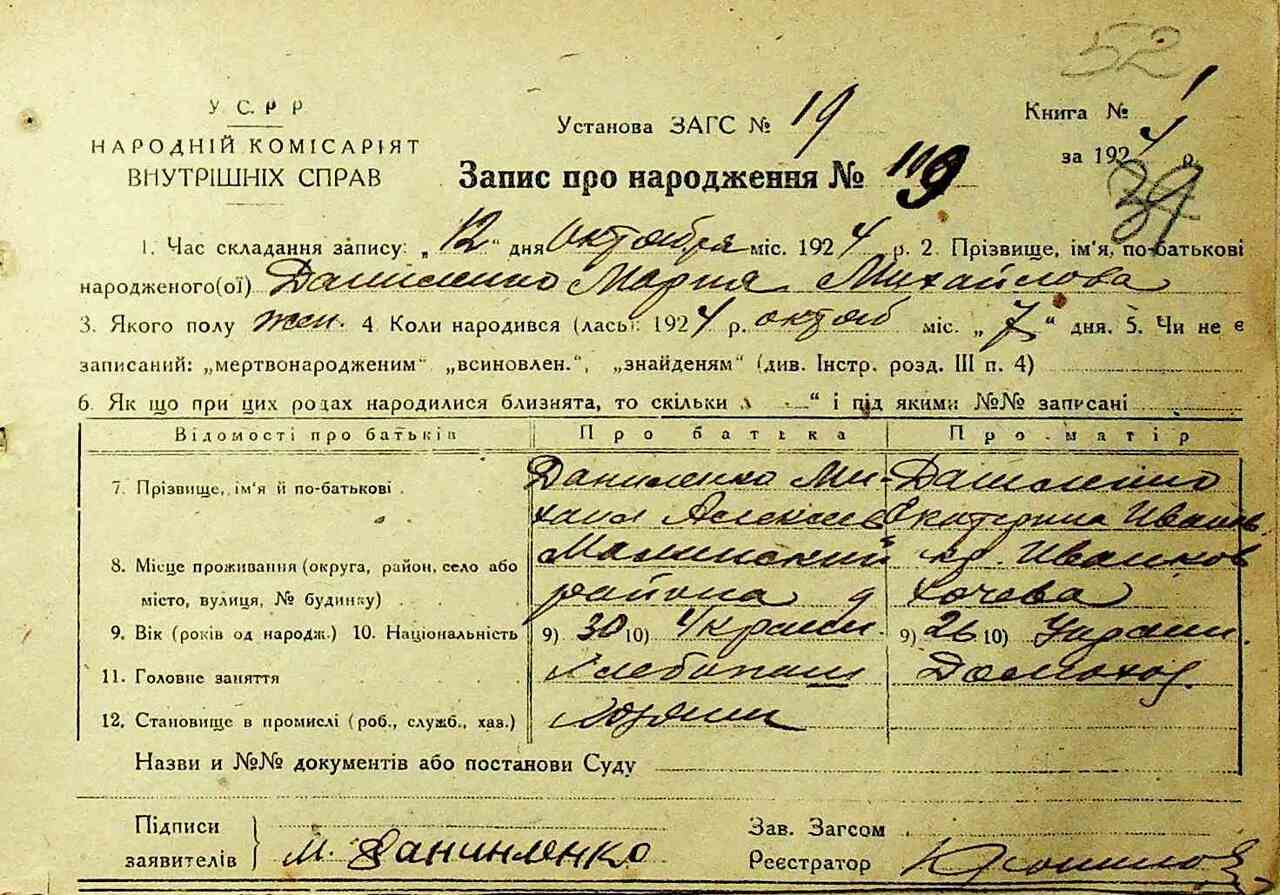 52
У С. Р Р
НАРОДНІЙ КОМІСАРІЯТ
ВНУТРІШНІХ СПРАВ
Установа ЗАГС № 19
Книга № 1
за 1924 р.
39
Запис про народження № 119
1. Час складання запису: „12" дня Октября міс. 1924 р. 2. Прізвище, ім'я, по-батькові
народженого(ої) Даниленко Мария Михайлова
3. Якого полу жен. 4. Коли народився (лась): 1924 р. октяб міс. „7" дня. 5. Чи не є
записаний: „мертвонародженим" „всиновлен.", „знайденям" (див. Інстр. розд. III п. 4)
6. Як що при цих родах народилися близнята, то скільки „ —" і під якими №№ записані
Відомості про батьків Про батька Про матір
7. Прізвище, ім'я й по-батькові Даниленко Ми- Даниленко
хаил Алексеев Екатерина Иванов
8. Місце проживання (округа, район, село або Малинский Иванков
місто, вулиця, № будинку) района д Хочева
9. Вік (років од народж.) 10. Національність 9) 30 10) Украин. 9) 26 10) Украин.
11. Головне заняття Хлебопаш Домохоз.
12. Становище в промислі (роб., служб., хаз.) Хозяин
Назви и №№ документів або постанови Суду
Підписи
заявителів М. Даниленко
Зав. Загсом
Реєстратор